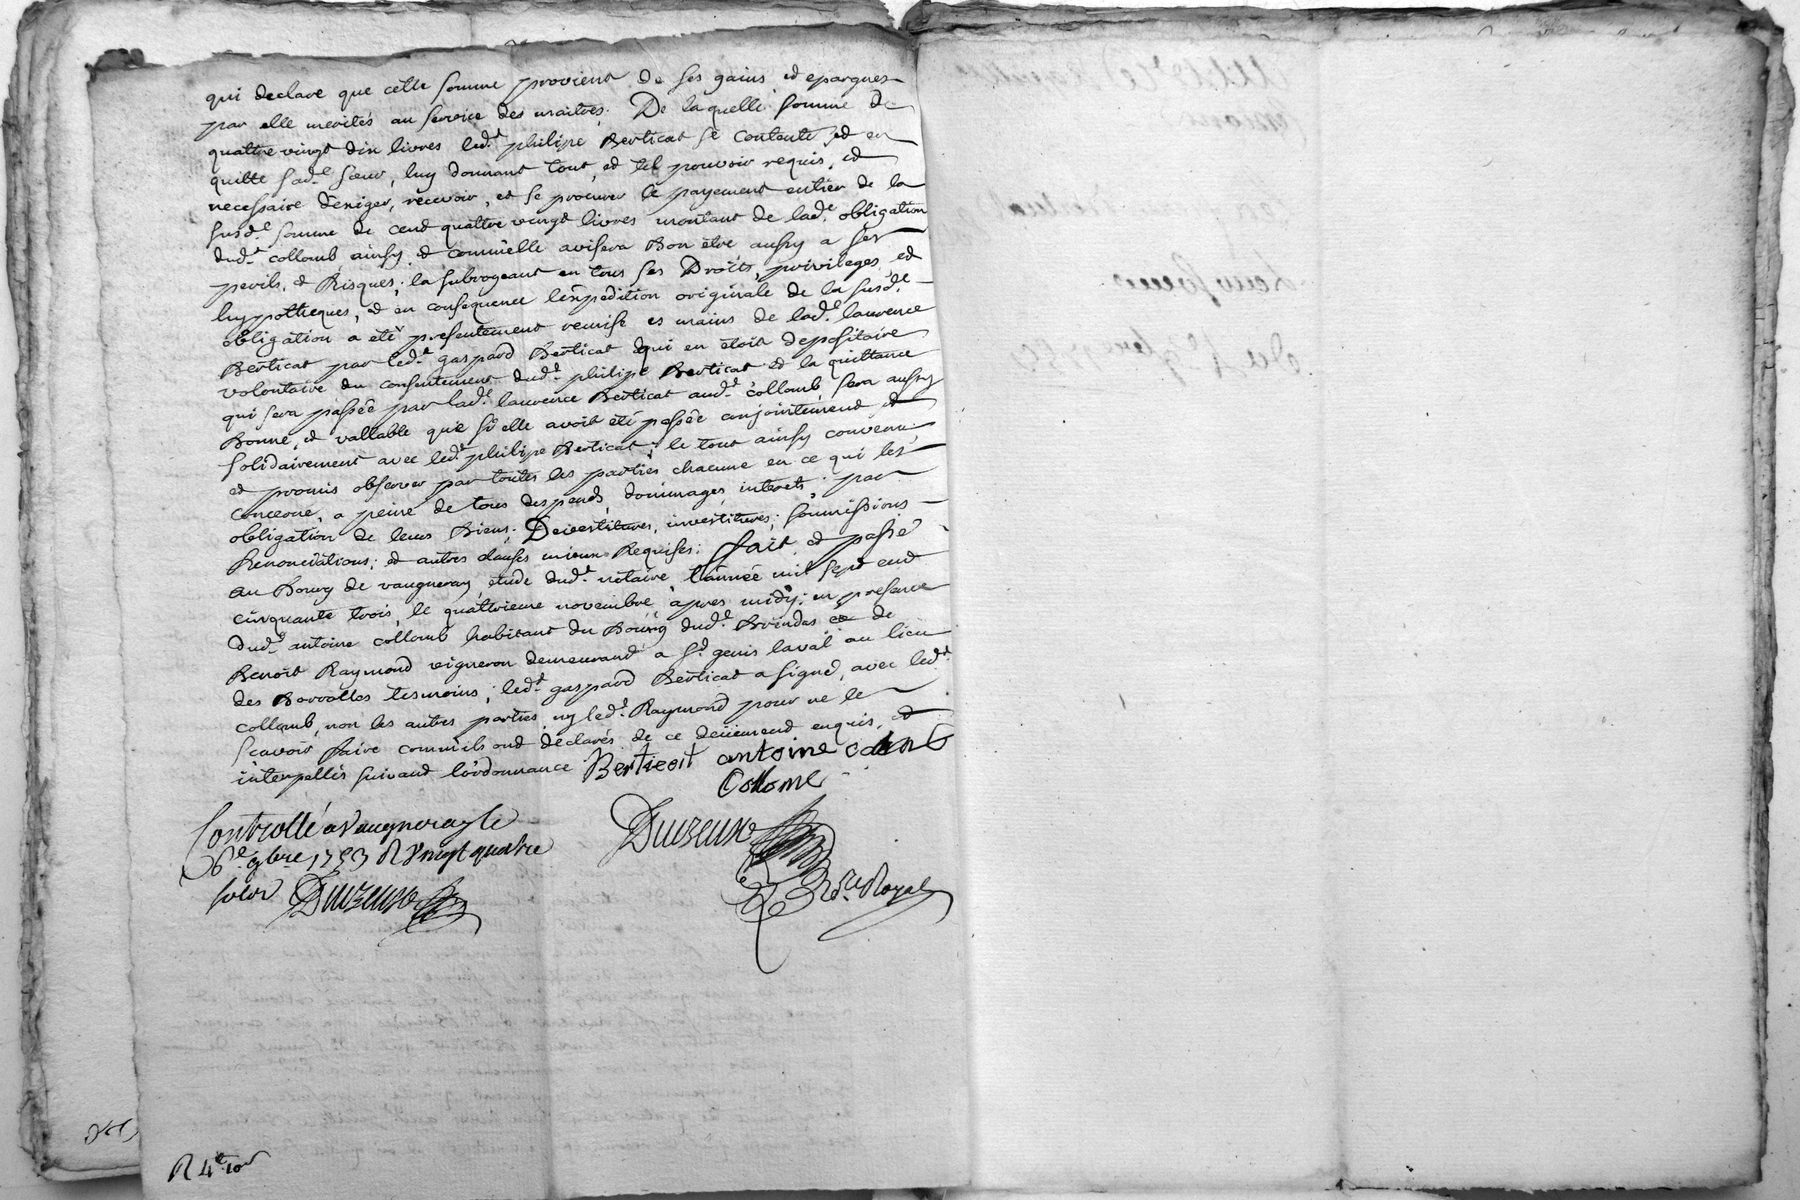 qui declare que cette somme provient de ses gains et epargnes
par elle merités au service des maitres; De laquelle somme de
quattre vingt dix livres led.t philipe Berticat se contente, et en
quitte sad.e sœur, luy donnant tout, et tel pouvoir requis, et
necessaire d'exiger, recevoir, et se procurer le payement entier de la
susd.e somme de cent quattre vingt livres montant de lad.e obligation
dud.t collomb ainsy, et comm'elle avisera Bon être aussy a ses
perils, et Risques; la subrogeant en tous ses Droits, privileges, et
hyppotheques, et en consequence l'expedition originale de la susd.e
obligation a eté presentement remise es mains de lad.e laurence
Berticat par led.t gaspard Berticat qui en étoit depositaire
volontaire du consentement dud.t philipe Berticat et la quittance
qui sera passée par lad.e laurence Berticat aud.t collomb sera aussy
Bonne, et vallable que si elle avoit été passée conjointement et
solidairement avec led.t philipe Berticat; le tout ainsy convenu
et promis observer par toutes les parties chacune en ce qui les
concerne, a peine de tous despends, dommages, interets; par
obligation de leurs Biens; Devestitures, investitures; soumissions
Renonciations; et autres clauses mieux Requises; ffait et passé
au Bourg de vaugneray étude dud.t notaire l'année mil sept cent
cinquante trois, le quattrieme novembre, apres midy; en presence
dud.t antoine collomb habitant du Bourg dud.t Brindas et de
Benoit Raymond vigneron demeurand a S.t genis laval au lieu
des Barrolles tesmoins; led.t gaspard Berticat a signé, avec led.t
collomb, non les autres parties ny led.t Raymond pour ne le
sçavoir faire comm'ils ont declarés de ce deüement enquis, et
interpellés suivant l'ordonnance Berticat antoine
Collome
Controllé a Vaugneray le
6e 9bre 1753 R Vingt quatre
sols
Royal
R 4e